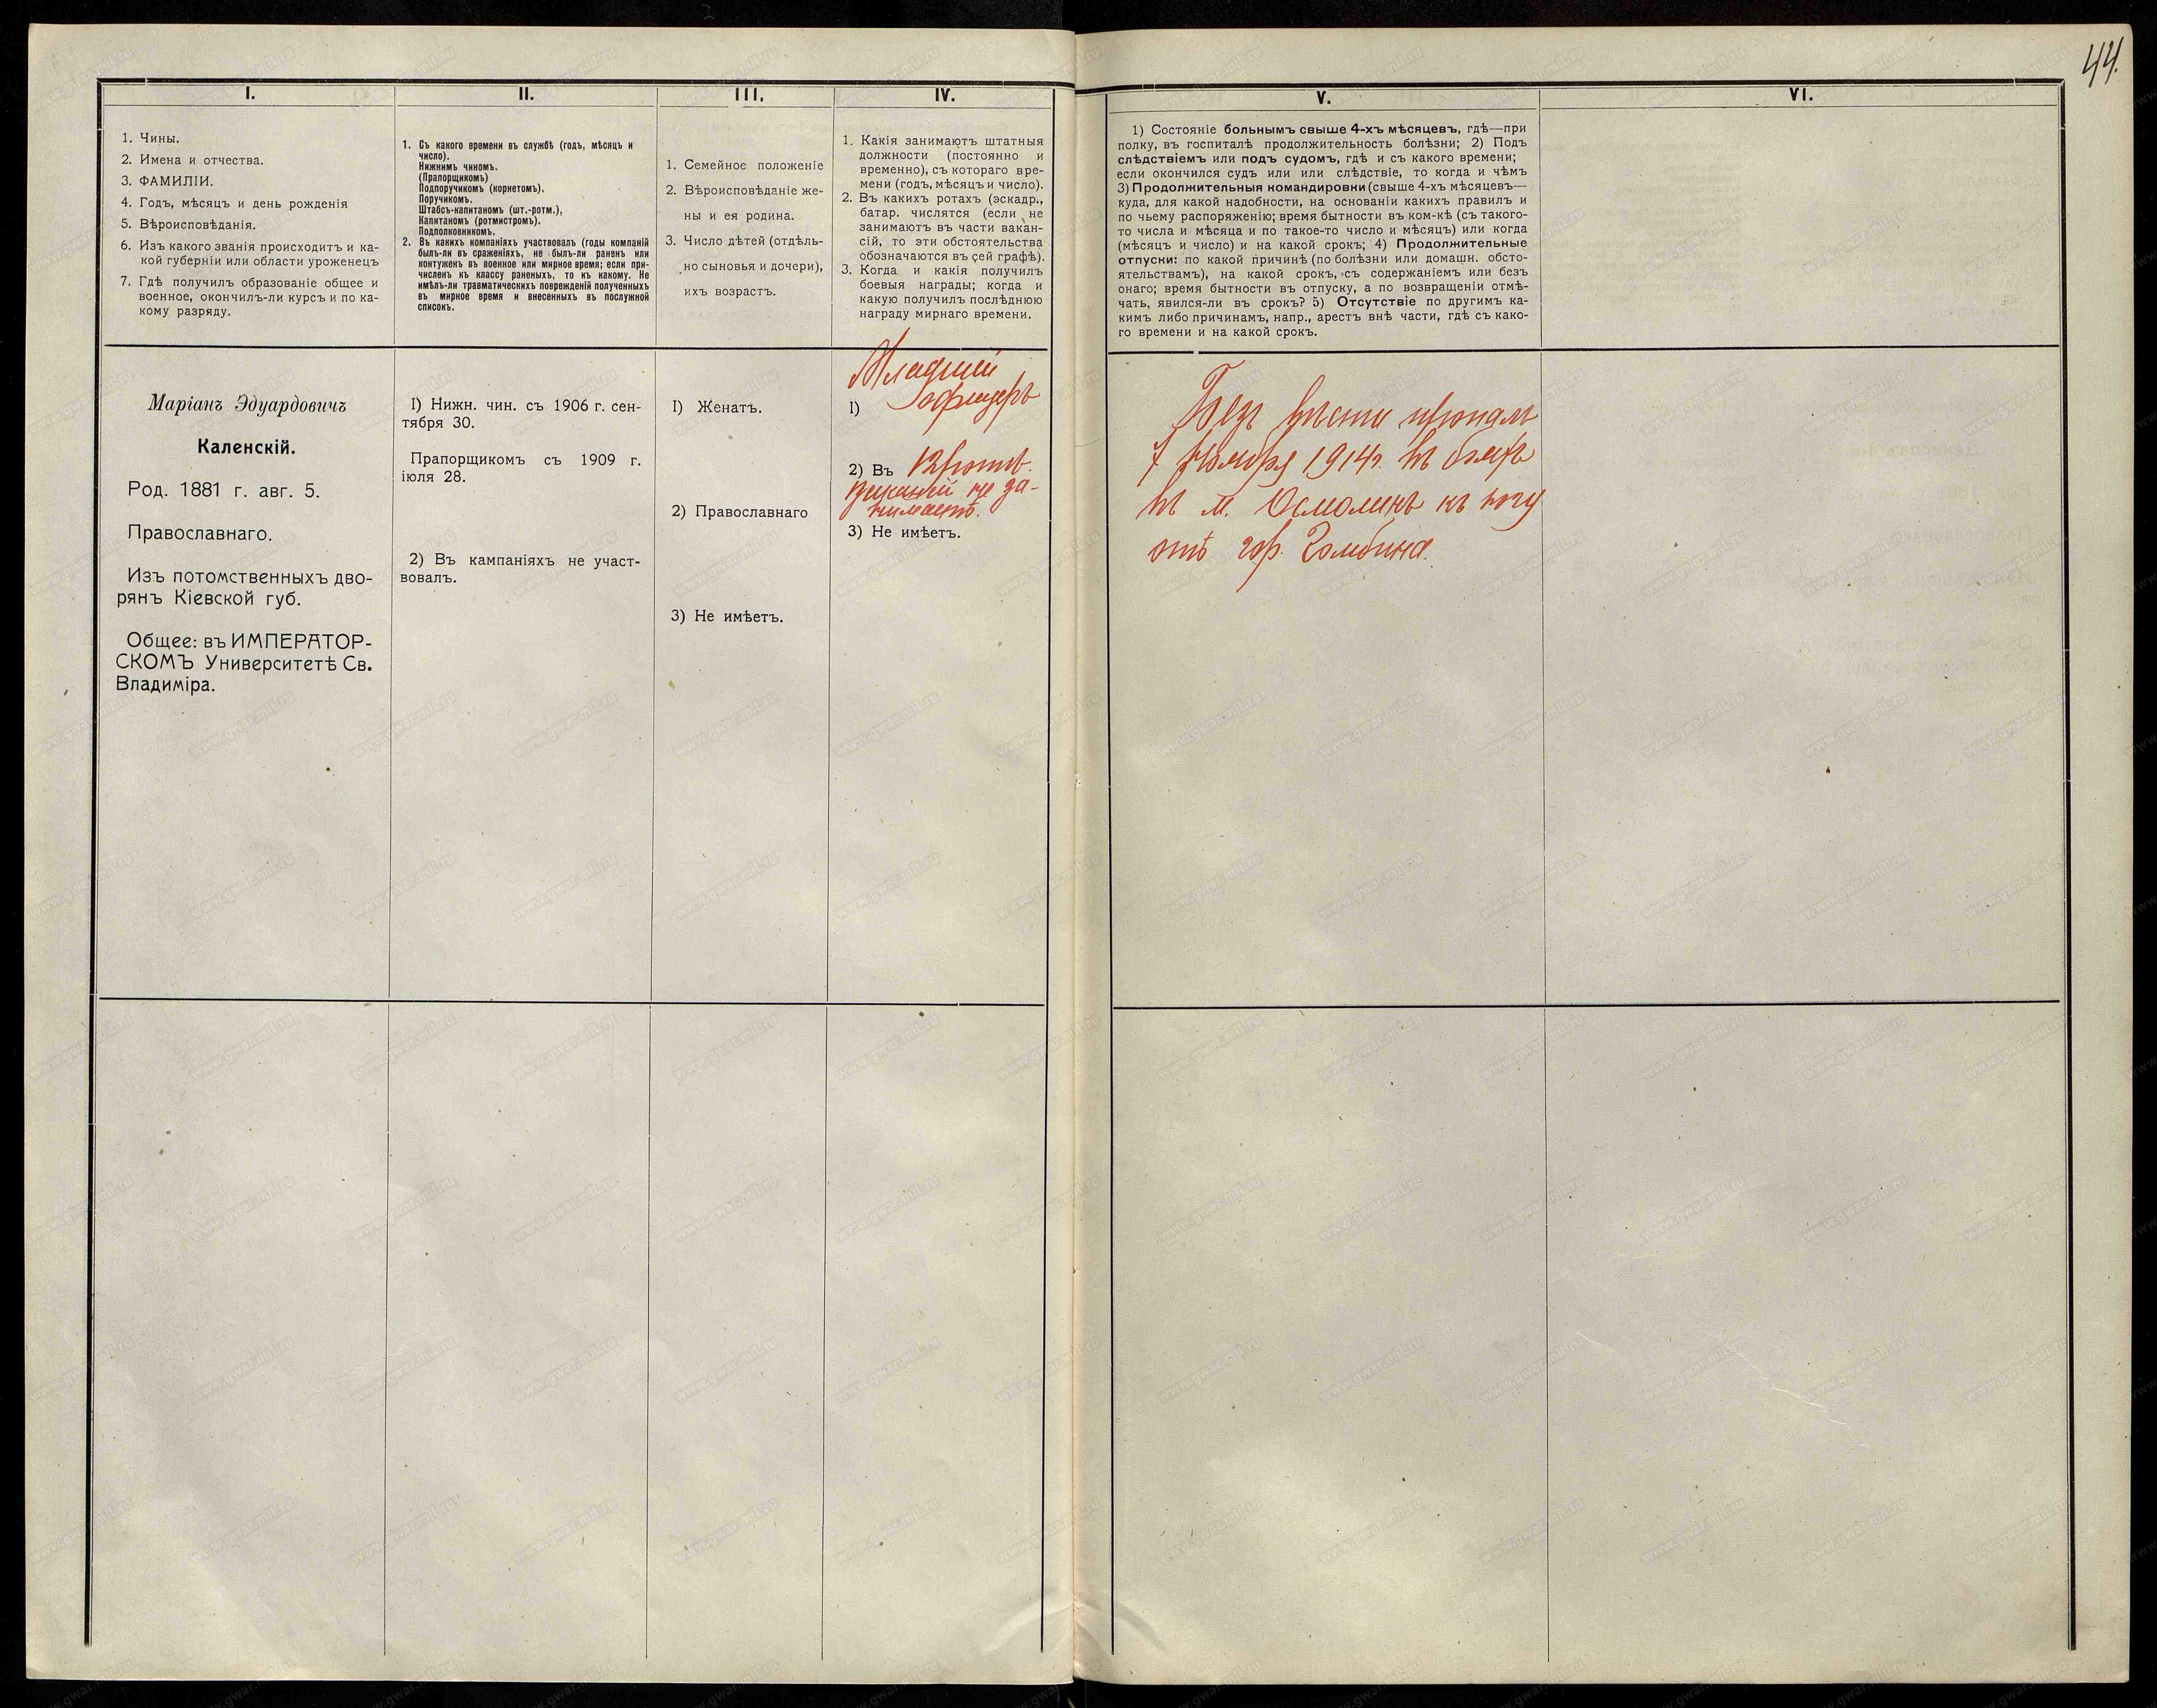 44.
I.
1. Чины.
2. Имена и отчества.
3. ФАМИЛІИ.
4. Годъ, мѣсяцъ и день рожденія
5. Вѣроисповѣданія.
6. Изъ какого званія происходитъ и ка-
кой губерніи или области уроженецъ
7. Гдѣ получилъ образованіе общее и
военное, окончилъ-ли курсъ и по ка-
кому разряду.
II.
1. Съ какого времени въ службѣ (годъ, мѣсяцъ и
число).
Нижнимъ чиномъ.
(Прапорщикомъ)
Подпоручикомъ (корнетомъ).
Поручикомъ.
Штабсъ-капитаномъ (шт.-ротм.),
Капитаномъ (ротмистромъ).
Подполковникомъ.
2. Въ какихъ компаніяхъ участвовалъ (годы компаній
былъ-ли въ сраженіяхъ, не былъ-ли раненъ или
контуженъ въ военное или мирное время; если при-
численъ къ классу раненыхъ, то къ какому. Не
имѣлъ-ли травматическихъ поврежденій полученныхъ
въ мирное время и внесенныхъ въ послужной
списокъ.
III.
1. Семейное положеніе
2. Вѣроисповѣданіе же-
ны и ея родина.
3. Число дѣтей (отдѣль-
но сыновья и дочери),
ихъ возрастъ.
IV.
1. Какія занимаютъ штатныя
должности (постоянно и
временно), съ котораго вре-
мени (годъ, мѣсяцъ и число).
2. Въ какихъ ротахъ (эскадр.,
батар. числятся (если не
занимаютъ въ части вакан-
сій, то эти обстоятельства
обозначаются въ сей графѣ).
3. Когда и какія получилъ
боевыя награды; когда и
какую получилъ послѣднюю
награду мирнаго времени.
V.
1) Состояніе больнымъ свыше 4-хъ мѣсяцевъ, гдѣ—при
полку, въ госпиталѣ продолжительность болѣзни; 2) Подъ
слѣдствіемъ или подъ судомъ, гдѣ и съ какого времени;
если окончился судъ или или слѣдствіе, то когда и чѣмъ
3) Продолжительныя командировки (свыше 4-хъ мѣсяцевъ—
куда, для какой надобности, на основаніи какихъ правилъ и
по чьему распоряженію; время бытности въ ком-кѣ (съ такого-
то числа и мѣсяца и по такое-то число и мѣсяцъ) или когда
(мѣсяцъ и число) и на какой срокъ; 4) Продолжительные
отпуски: по какой причинѣ (по болѣзни или домашн. обсто-
ятельствамъ), на какой срокъ, съ содержаніемъ или безъ
онаго; время бытности въ отпуску, а по возвращеніи отмѣ-
чать, явился-ли въ срокъ? 5) Отсутствіе по другимъ ка-
кимъ либо причинамъ, напр., арестъ внѣ части, гдѣ съ како-
го времени и на какой срокъ.
VI.
Маріанъ Эдуардовичъ
Каленскій.
Род. 1881 г. авг. 5.
Православнаго.
Изъ потомственныхъ дво-
рянъ Кіевской губ.
Общее: въ ИМПЕРАТОР-
СКОМЪ Университетѣ Св.
Владиміра.
I) Нижн. чин. съ 1906 г. сен-
тября 30.
Прапорщикомъ съ 1909 г.
іюля 28.
2) Въ кампаніяхъ не участ-
вовалъ.
I) Женатъ.
2) Православнаго
3) Не имѣетъ.
Младшій
I) офицеръ
2) Въ 12 ротѣ.
вакансій не за-
нимаетъ.
3) Не имѣетъ.
Безъ вѣсти пропалъ
7 ноября 1914 г. въ бояхъ
въ м. Осмолинъ къ югу
отъ гор. Гомбина.